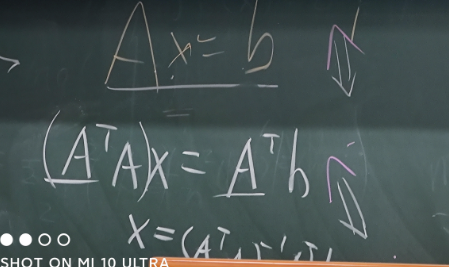 Ax = b
(AᵀA)x = Aᵀb
x = (Aᵀ
SHOT ON MI 10 ULTRA